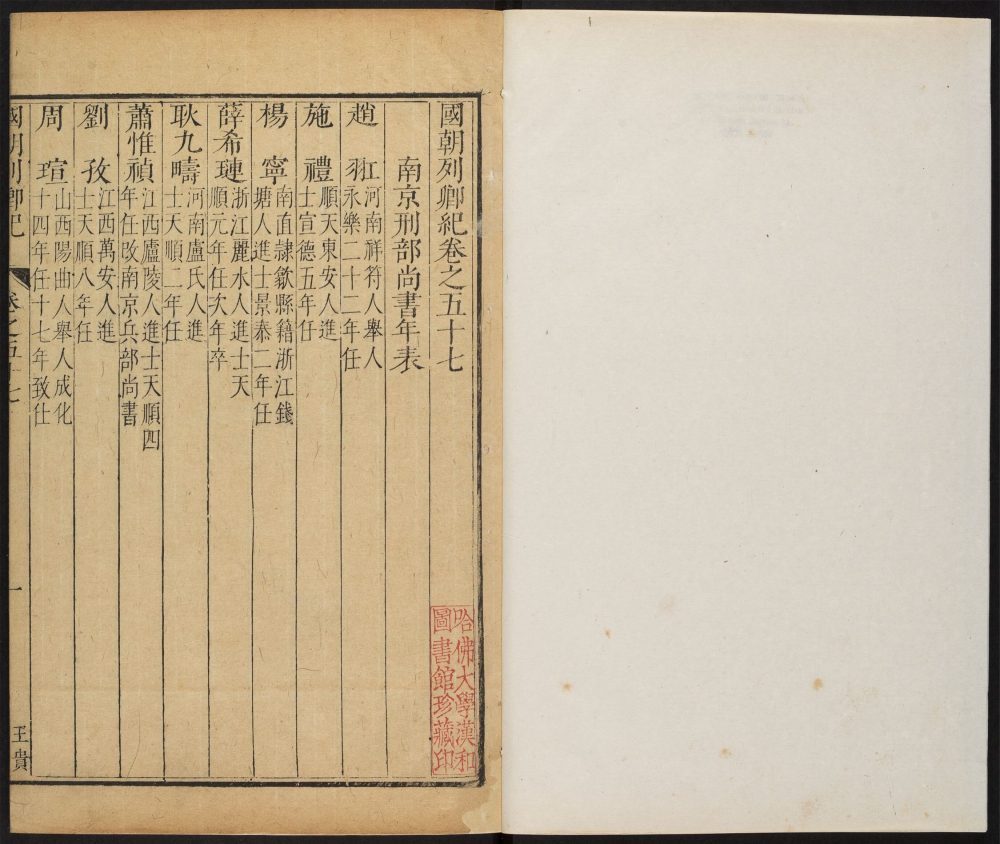 國朝列卿紀卷之五十七
南京刑部尚書年表
趙羾
河南祥符人舉人
永樂二十二年任
施禮
順天東安人進
士宣德五年任
楊寧
南直隷歙縣籍浙江錢
塘人進士景泰二年任
薛希璉
浙江麗水人進士天
順元年任次年卒
耿九疇
河南盧氏人進
士天順二年任
蕭惟禎
江西廬陵人進士天順四
年任改南京兵部尚書
劉孜
江西萬安人進
士天順八年任
周瑄
山西陽曲人舉人成化
十四年任十七年致仕
國朝列卿紀
卷之五十七
一
王貴
哈佛大學漢和
圖書館珍藏印